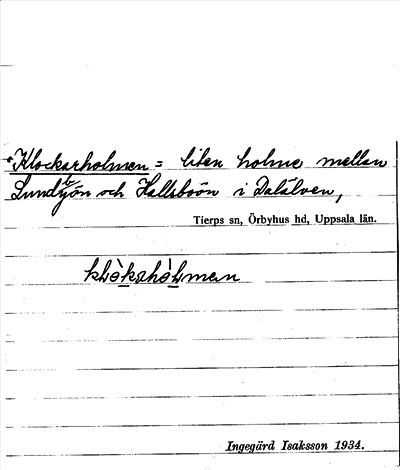 *Klockarholmen = liten holme mellan
Lundbjön och Hallsboön i Dalälven,
Tierps sn, Örbyhus hd, Uppsala län.
Ingegärd Isaksson 1934.